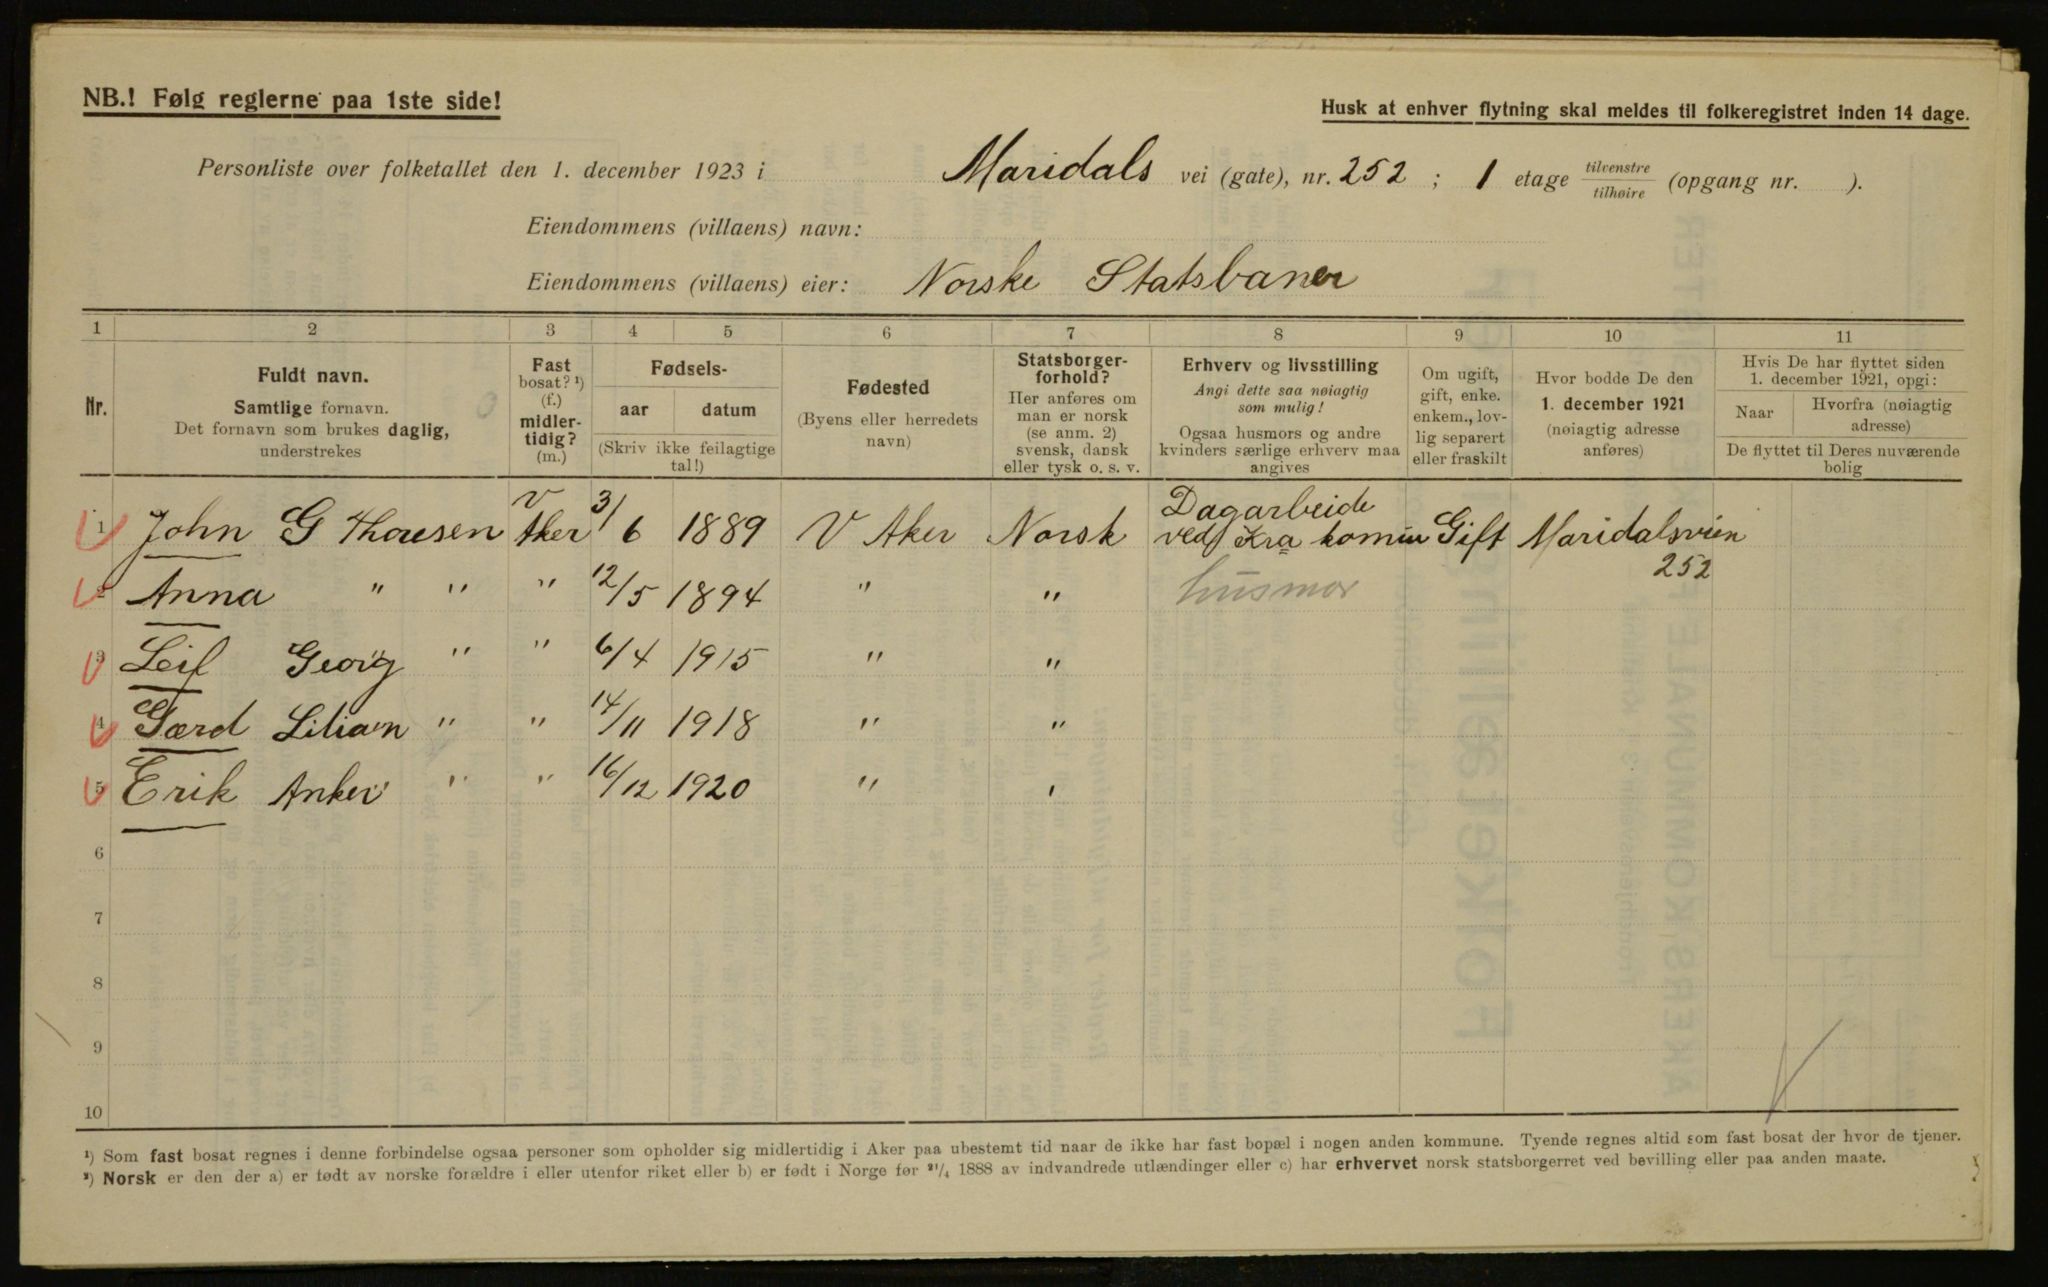 NB.! Følg reglerne paa 1ste side!
Husk at enhver flytning skal meldes til folkeregistret inden 14 dage.
Personliste over folketallet den 1. december 1923 i Maridals vei (gate), nr. 252 ; 1 etage tilvenstre tilhøire (opgang nr. ).
Eiendommens (villaens) navn:
Eiendommens (villaens) eier: Norske Statsbaner
1 2 3 4 5 6 7 8 9 10 11
Nr.
Fuldt navn.
Samtlige fornavn.
Det fornavn som brukes daglig,
understrekes
Fast
bosat? ¹)
(f.)
midler-
tidig?
(m.)
Fødsels-
aar datum
(Skriv ikke feilagtige
tal!)
Fødested
(Byens eller herredets
navn)
Statsborger-
forhold?
Her anføres om
man er norsk
(se anm. 2)
svensk, dansk
eller tysk o. s. v.
Erhverv og livsstilling
Angi dette saa nøiagtig
som mulig!
Ogsaa husmors og andre
kvinders særlige erhverv maa
angives
Om ugift,
gift, enke.
enkem., lov-
lig separert
eller fraskilt
Hvor bodde De den
1. december 1921
(nøiagtig adresse
anføres)
Hvis De har flyttet siden
1. december 1921, opgi:
Naar
Hvorfra (nøiagtig
adresse)
De flyttet til Deres nuværende
bolig
1 John G Thoresen V Aker 3/6 1889 V Aker Norsk Dagarbeide ved Kra komun Gift Maridalsvein 252
2 Anna " " " 12/5 1894 " " husmor
3 Leif Georg " " 6/4 1915 " "
4 Gærd Liliam " " 14/11 1918 " "
5 Erik Anker " " 16/12 1920 " "
6
7
8
9
10
¹) Som fast bosat regnes i denne forbindelse ogsaa personer som opholder sig midlertidig i Aker paa ubestemt tid naar de ikke har fast bopæl i nogen anden kommune. Tyende regnes altid som fast bosat der hvor de tjener.
²) Norsk er den der a) er født av norske forældre i eller utenfor riket eller b) er født i Norge før ²¹/₄ 1888 av indvandrede utlændinger eller c) har erhvervet norsk statsborgerret ved bevilling eller paa anden maate.